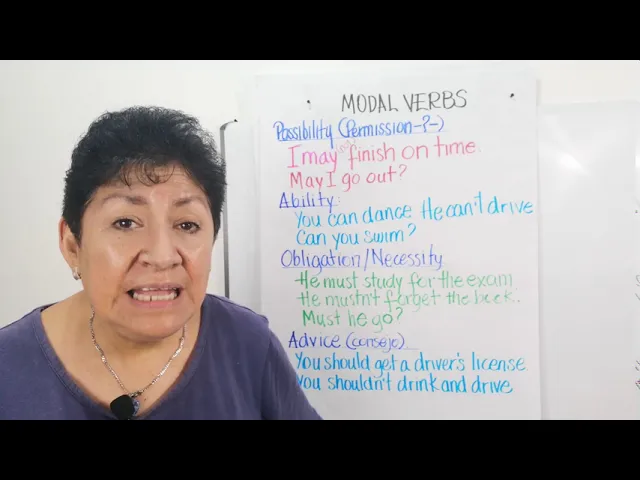 MODAL VERBS
Possibility (Permission-?-)
I may finish on time.
May I go out?
Ability:
You can dance He can't drive
Can you swim?
Obligation/Necessity
He must study for the exam
He mustn't forget the book.
Must he go?
Advice (consejo)
You should get a driver's license.
You shouldn't drink and drive